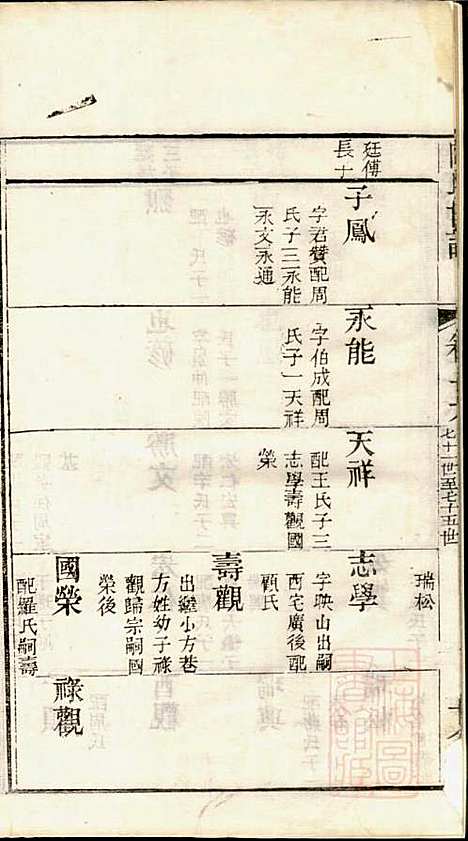 廷傅
長子
子鳳
字君贊配周
氏子三永能
永文永通
永能
字伯成配周
氏子一天祥
天祥
配王氏子三
志學壽觀國
榮
瑞松
志學
字映山出嗣
西宅廣後配
顧氏
壽觀
出繼小方巷
方姓幼子祿
觀歸宗嗣國
榮後
國榮
配羅氏嗣壽
祿觀
七十一世至七十五世